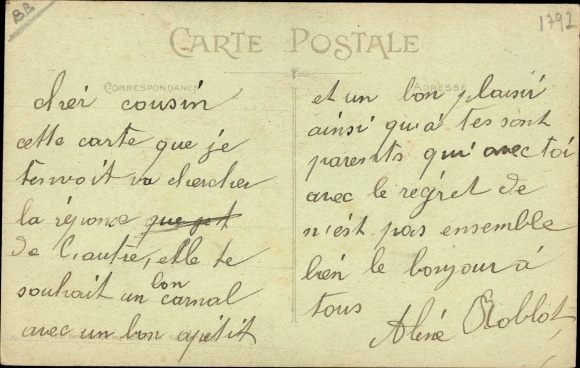 BB
1792
CARTE POSTALE
CORRESPONDANCE
ADRESSE
chér cousin
cette carte que je
tenvoit va chercher
la réponse
de l'autre, elle te
souhait un bon carnal
avec un bon apétit
et un bon plaisir
ainsi qu'à tes sont
parents qui avec toi
avec le régret de
n'ést pas ensemble
bién le bonjour à
tous
Roblot